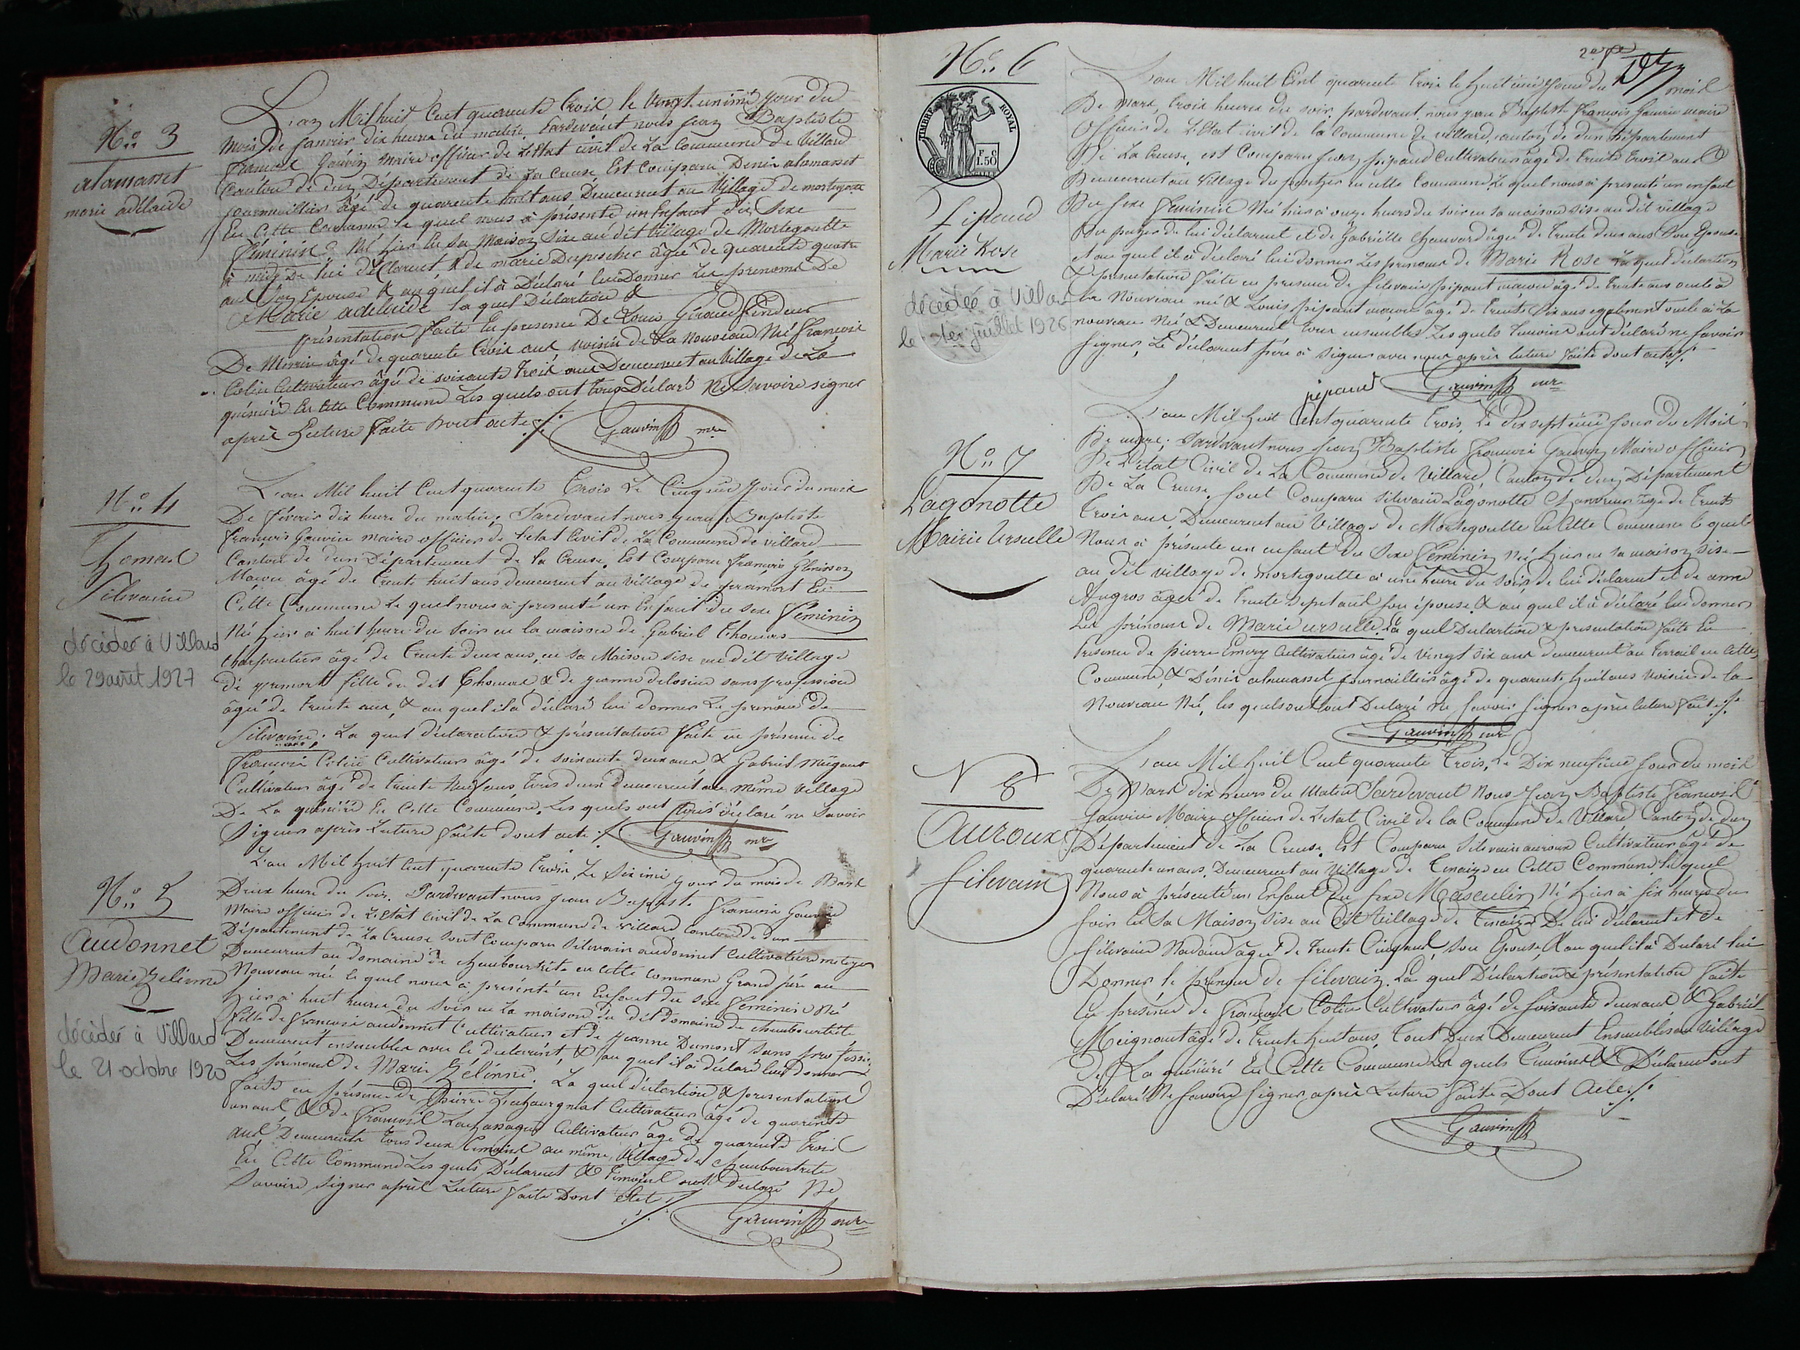 N.o 3
alamasset
marie adélaïde
L'an Mil huit Cent quarente trois le vingt unime jour du
mois de janvier dix heure du matin Pardevant nous jean Baptiste
françois Gauvin maire officier de L'Etat civil de La Commune de Villard
Canton de dun Département de la Creuse Est comparu Denis alamasset
fournaillier âgé de quarente huit ans Demeurent au Village de mortegoutte
En Cette Commune le quel nous à présenté un Enfant du Sexe
féminin Né hier en sa maison Sise au dit Village de Mortegoutte
à midi De lui déclarent & de marie Depescher âgée de quarente quatre
ans Son Epouse & au quel il à Déclaré lui Donner Les prenoms De
Marie adelaide La quel Déclartion &
présentation faite En presence De Louis Giraud
De âgé de quarente trois ans voisin de La Nouveau Né françois
Colin Cultivateur âgé de soixante trois ans Demeurent au Village de La
quénéré En Cette Commune Les quels ont tous Déclaré Ne Savoire signer
après Lecture faite Dont acte
Gauvin mre
N.o 4
Silvaine
décédée à Villard
le 29 août 1927
L'an Mil huit Cent quarente Trois Le Cinqme jour du mois
De février dix heure du matin. Pardevant nous jean Baptiste
françois Gauvin maire officier de L'etat Civil de La Commune de villard
Canton de dun Département de la Creuse. Est Comparu françois
Maçon âgé de Trente huit ans demeurent au village de En
Cette Commune Le quel nous à présenté un Enfant du Sexe féminin
Né hier à huit heure du Soir en la maison de Gabriel Thomas
Charpentier âgé de Trente deux ans, en sa Maison sise au dit Village
de fille du dit Thomas & de jeanne sans profession
âgée de Trente ans, & au quel il a déclaré lui donner Le prénom de
Silvaine. La quel déclaration & présentation faite en présence de
françois Colin Cultivateur âgé de soixante deux ans & Gabriel
Cultivateur âgé de trente huit ans, tous deux demeurent au même village
De La quénéré En Cette Commune. Les quels ont tous déclaré ne Savoir
Signer après Lecture faite dont acte
Gauvin mre
N.o 5
Audonnet
Marie Zélinne
décédée à Villard
le 21 octobre 1920
L'an Mil huit Cent quarente Trois Le Sixime jour du mois de Mars
Deux heure du Soir. Pardevant nous jean Baptiste françois Gauvin
Maire officier de L'Etat Civil de La Commune de villard Canton de dun
Département de La Creuse sont Comparu Silvain audonnet Cultivateur
Demeurent au domaine de chambourtiste en cette commune Grand père au
Nouveau né le quel nous à présenté un Enfant du Sexe féminin Né
hier à huit heure du Soir en la maison du dit domaine de chambourtiste
fille de françois audonnet Cultivateur et de jeanne Dumont Sans profession
Demeurent ensembles avec le declarent, & au quel il à déclaré lui donner
Les prénoms de Marie Zélinne. La quel déclartion & présentation
faite en présence de pierre Cultivateur âgé de quarente
un ans & de françois Lachassagne Cultivateur âgé de quarente Trois
ans Demeurents tous deux au même village de chambourtiste
En Cette Commune Les quels Déclarent & Temoins ont déclaré Ne
Savoire signer après Lecture faite Dont
Gauvin mre
N.o 6
TIMBRE ROYAL
F. C.
1.50
Marie Rose
décédée à Villard
le 1er juillet 1926
L'an Mil huit Cent quarente trois le huitime jour du mois
De mars, trois heures du soir. pardevant nous jean Baptiste françois Gauvin maire
officier de L'Etat civil de la commune de villard, canton de dun Département
De La Creuse, est Comparu jean pipaud cultivateur âgé de trente trois ans
Demeurent au Village du en cette Commune Le quel nous à présenté un enfant
Du Sexe féminin Né hier à onze heure du soir en sa maison sise au dit village
de lui déclarent et de Gabrielle Chauvard âgée de Trente deux ans Son Epouse
& au quel il à déclaré lui donner Les prenoms de Marie Rose La quel declartion
& présentation faite en présence de Silvain pipaut maçon âgé de trente ans oncle à
La Nouveau né & Louis pipaut maçon âgé de trente six ans egalement oncle à La
nouveau Né & Demeurent tous ensembles Les quels temoins ont déclaré ne Savoir
signer, Le déclarent père à signer avec nous après lecture faite dont acte
pipaut
Gauvin mre
N.o 7
Lagonotte
Mairie Ursulle
L'an Mil huit Cent quarente Trois, Le Dix septime jour du Mois
De mars. Pardevant nous jean Baptiste françois Gauvin Maire officier
De L'etat Civil de La Commune de Villard, Canton de dun Département
De La Creuse, sont Comparu Silvain Lagonotte Chanvreur âgé de Trente
Trois ans, Demeurent au Village de Mortegoutte En Cette Commune Le quel
Nous à présenté un enfant Du Sexe féminin, Né hier en sa maison sise
au dit village de mortegoutte à une heure du soir, de lui déclarent et de anne
âgée de Trente Sept ans son épouse & au quel il à déclaré lui donner
Les prénoms de Marie ursulle. La quel Déclartion & présentation faite En
présence de pierre Emery Cultivateur âgé de vingt six ans demeurent au en Cette
Commune, & Dénis alamasset fournaillier âgé de quarente huit ans voisin de La
Nouveau Né, les quels ont tous Déclaré ne Savoir signer après lecture faite
Gauvin mre
N 8
Auroux
Silvain
L'an Mil huit Cent quarente Trois, Le Dix neufime jour du mois
De Mars dix heures du Matin Pardevant Nous jean Baptiste françois
Gauvin Maire officier de L'etat Civil de la Commune de Villard Canton de dun
Département de La Creuse. Est Comparu Silvain auroux Cultivateur âgé de
quarente un ans, Demeurent au Village de En Cette Commune Le quel
Nous à présenté un Enfant Du Sexe Masculin Né hier à six heure du
soir En Sa Maison Sise au dit Village de De lui déclarent et de
Silvaine Nadaud âgée de Trente Cinq ans, Son Epouse, & au quel il à Déclaré lui
Donner le prénom de Silvain, La quel Déclartion & présentation faite
En présence de françois Colin Cultivateur âgé de Soixante deux ans & Gabriel
âgé de Trente huit ans, Tout Deux Demeurent Ensembles au Village
de La quénéré En Cette Commune Les quels Temoins & Déclarent ont
Déclaré Ne Savoire signer après Lecture faite Dont Acte
Gauvin